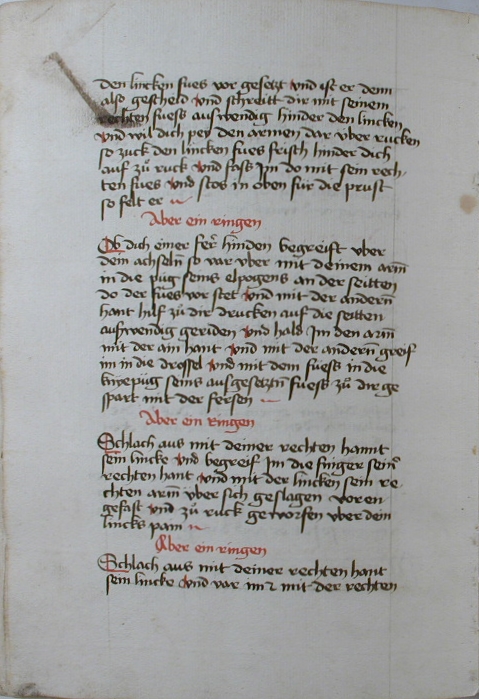 den lincken fues vor gesetzt vnd ist er denn
also gescheld vnd schreitt dir mit seinem
rechten fuess auswendig hinder den lincken
vnd wil dich pey den armen dar vber rucken
so zuck den lincken fues frisch hinder dich
auf zů ruck vnd fass Im do mit sein rech-
ten fues vnd stos in oben für die prust
so felt er
Aber ein ringen
Ob dich einer fer̄ hinden begreift vber
dein achseln̄ so var vber mit deinem arm̄
in die püg seins elpogens an der seitten
do der fues vor stet vnd mit der andern̄
hant hilf zů dir drucken auf die seitten
auswendig geriden vnd hald Im den arm̄
mit der ain hant vnd mit der andern̄ greif
im in die drossel vnd mit dem fuess in die
kniepüg seins ausgesetztn̄ fuess zů dir ge
spart mit der fersen
Aber ein ringen
Schlach aus mit deiner rechten hannt
sein lincke vnd begreif Im die finger seiner
rechten hant vnd mit der lincken sein re-
chten arm̄ vber sich geslagen voren
gefast vnd zů ruck geworfen vber dein
lincks pain
Aber ein ringen
Schlach aus mit deiner rechten hant
sein lincke vnd var im mit der rechten